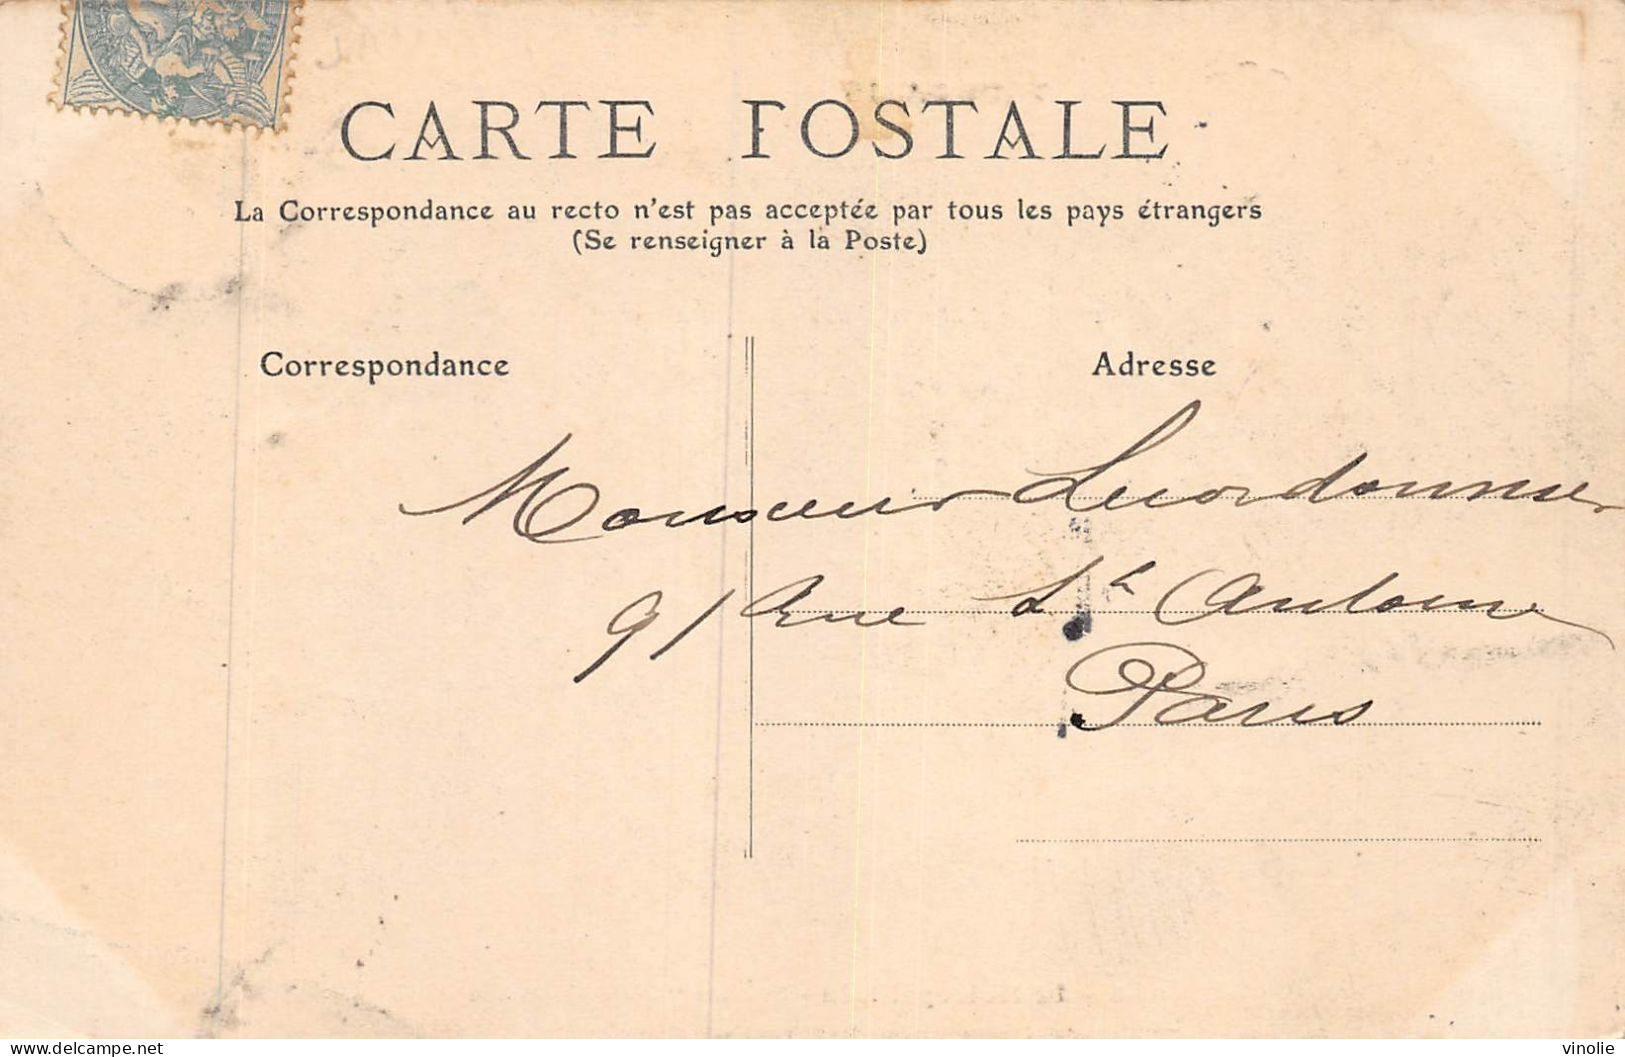 CARTE POSTALE
La Correspondance au recto n'est pas acceptée par tous les pays étrangers
(Se renseigner à la Poste)
Correspondance
Adresse
Monsieur
91 Rue St Antoine
Paris
delcampe.net
vinolie